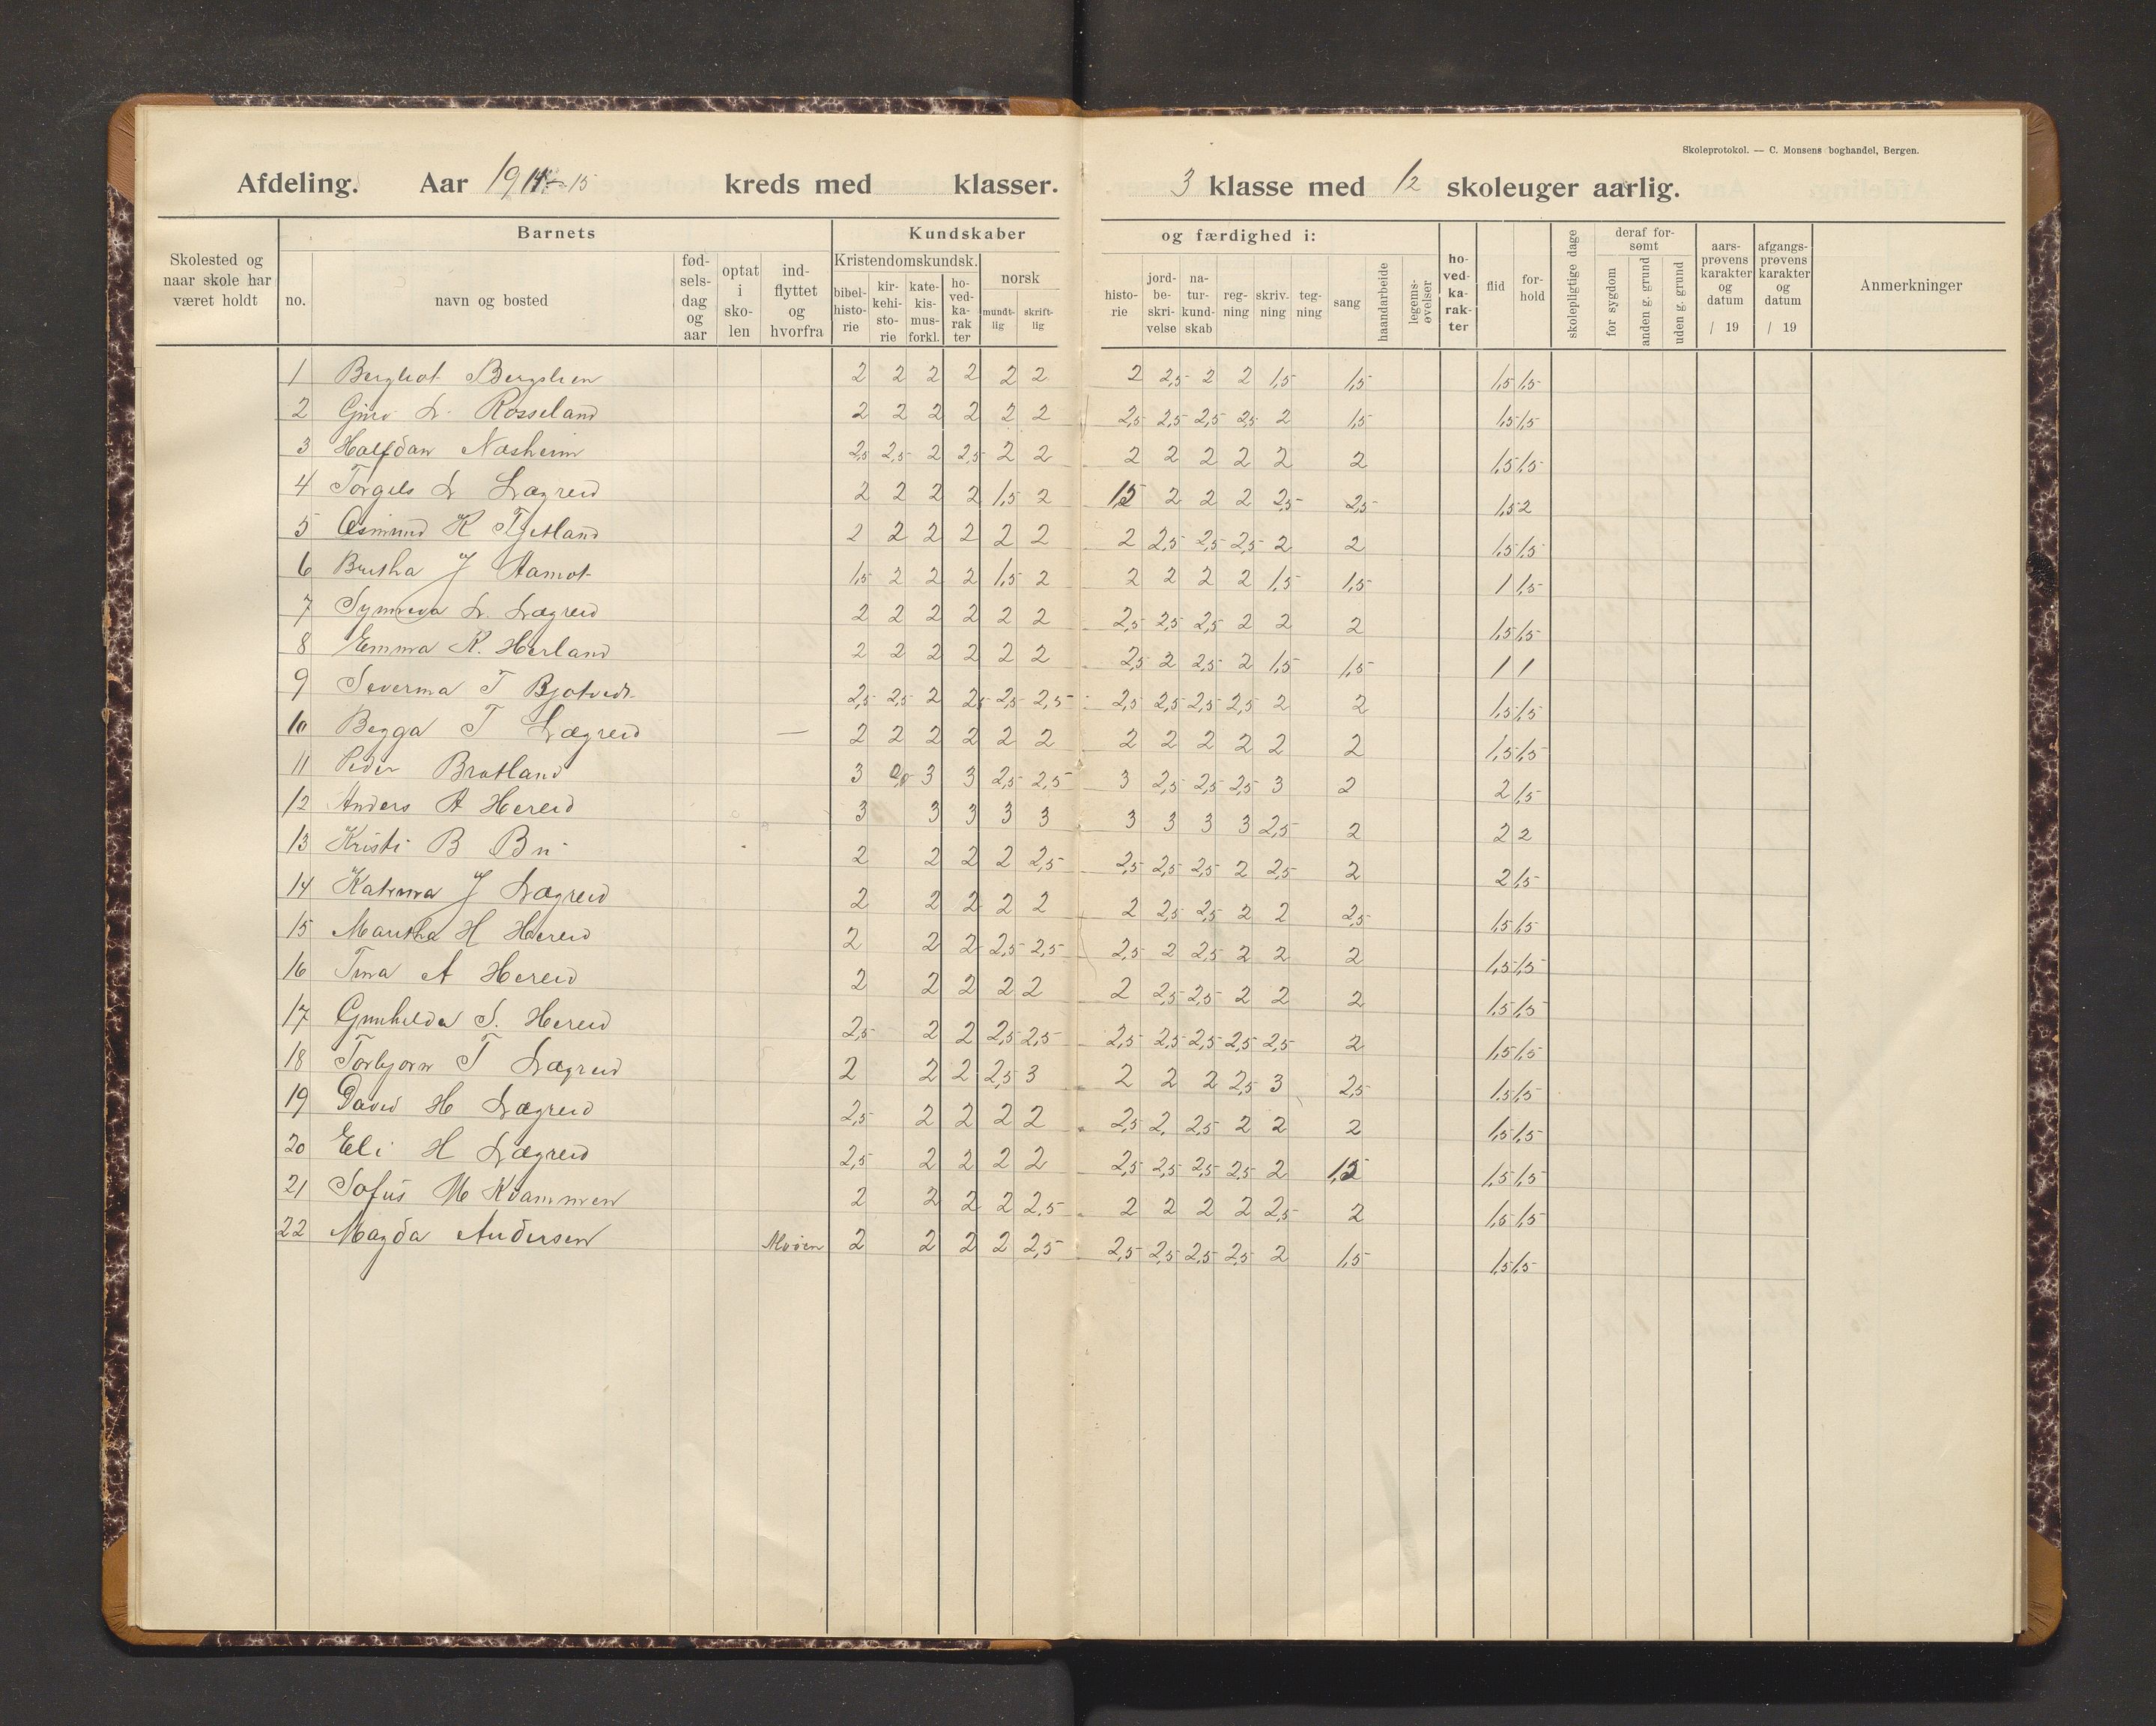 Skoleprotokol. — C. Monsens boghandel, Bergen.
Afdeling. Aar 1914-15 kreds med klasser. 3 klasse med 12 skoleuger aarlig.
Skolested og naar skole har været holdt
Barnets
no. navn og bosted
fødselsdag og aar
optat i skolen
indflyttet og hvorfra
Kundskaber
Kristendomskundsk.
bibelhistorie kirkehistorie katekismusforkl. hovedkarakter
norsk
mundtlig skriftlig
og færdighed i:
historie jordbeskrivelse naturkundskab regning skrivning tegning sang haandarbeide legemsøvelser
hovedkarakter
flid forhold
skolepligtige dage
deraf forsømt
for sygdom anden g. grund uden g. grund
aarsprøvens karakter og datum / 19
afgangsprøvens karakter og datum / 19
Anmerkninger
1 Bergliot Bergslien 2 2 2 2 2 2 2 2,5 2 2 1,5 1,5 1,5 1,5
2 Guro L. Rosseland 2 2 2 2 2 2 2,5 2,5 2,5 2,5 2 1,5 1,5 1,5
3 Halfdan Næsheim 2,5 2,5 2 2,5 2 2 2 2 2 2 2 2 1,5 1,5
4 Torgils L Lægreid 2 2 2 2 1,5 2 1,5 2 2 2 2,5 2,5 1,5 2
5 Osmund K Tjetland 2 2 2 2 2 2 2 2,5 2,5 2,5 2 2 1,5 1,5
6 Britha J Aamot 1,5 2 2 2 1,5 2 2 2 2 2 1,5 1,5 1 1,5
7 Synneva L. Lægreid 2 2 2 2 2 2 2,5 2,5 2,5 2 2 2 1,5 1,5
8 Emma K. Herland 2 2 2 2 2 2 2,5 2 2,5 2 1,5 1,5 1 1
9 Severina T Bjotvedt 2,5 2,5 2 2,5 2,5 2,5 2,5 2,5 2,5 2,5 2 2 1,5 1,5
10 Begga T Lægreid — 2 2 2 2 2 2 2 2 2 2 2 2 1,5 1,5
11 Peder Bratland 3 3 3 2,5 2,5 3 2,5 2,5 2,5 3 2 2 1,5
12 Anders A Hereid 3 3 3 3 3 3 3 3 3 2,5 2 2 2
13 Kristi B Bu 2 2 2 2 2,5 2,5 2,5 2,5 2 2,5 2 2 1,5
14 Katrina J Lægreid 2 2 2 2 2 2 2,5 2,5 2 2 2,5 1,5 1,5
15 Martha H Hereid 2 2 2 2,5 2,5 2,5 2 2,5 2 2 2 1,5 1,5
16 Tina A Hereid 2 2 2 2 2 2 2,5 2,5 2 2 2 1,5 1,5
17 Gunhilda S. Hereid 2,5 2 2 2,5 2,5 2,5 2,5 2,5 2,5 2,5 2 1,5 1,5
18 Torbjørn T Lægreid 2 2 2 2,5 3 2 2 2 2,5 3 2,5 1,5 1,5
19 David H Lægreid 2,5 2 2 2 2 2,5 2, 2,5 2 2 2 1,5 1,5
20 Eli H Lægreid 2,5 2 2 2 2 2,5 2,5 2,5 2,5 2 1,5 1,5 1,5
21 Sofus M Kvammen 2 2 2 2 2,5 2 2 2 2 2,5 2 1,5 1,5
22 Magda Andersen 2 2 2 2 2,5 2,5 2,5 2,5 2,5 2 1,5 1,5 1,5